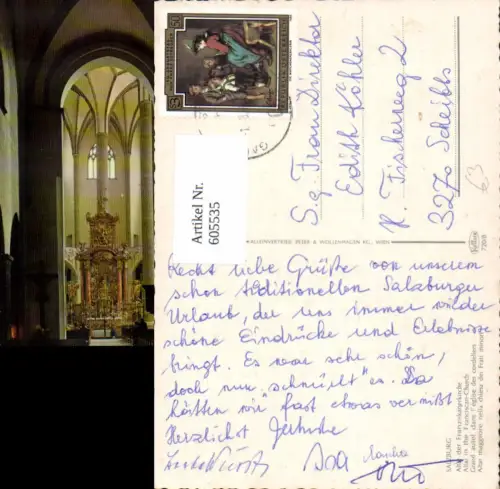 Artikel Nr.
605535
S.g. Frau Direktor
Edith Köhler
K. Fischerweg 2
3270 Scheibbs
63
ALLEINVERTRIEB BEIER & WOLLENMACON KG., WIEN
Recht liebe Grüße von unserem
schon traditionellen Salzburger
Urlaub, der uns immer wieder
schöne Eindrücke und Erlebnisse
bringt. Es war sehr schön,
doch nun „schnürlt" es. Da
hätten wir fast etwas vermißt.
Herzlichst
SALZBURG
Altar der Franziskanerkirche
Altar in the Franciscan-Church
Grand autel dans l'église des cordeliers
Altar maggiore nella chiesa dei Frati minori